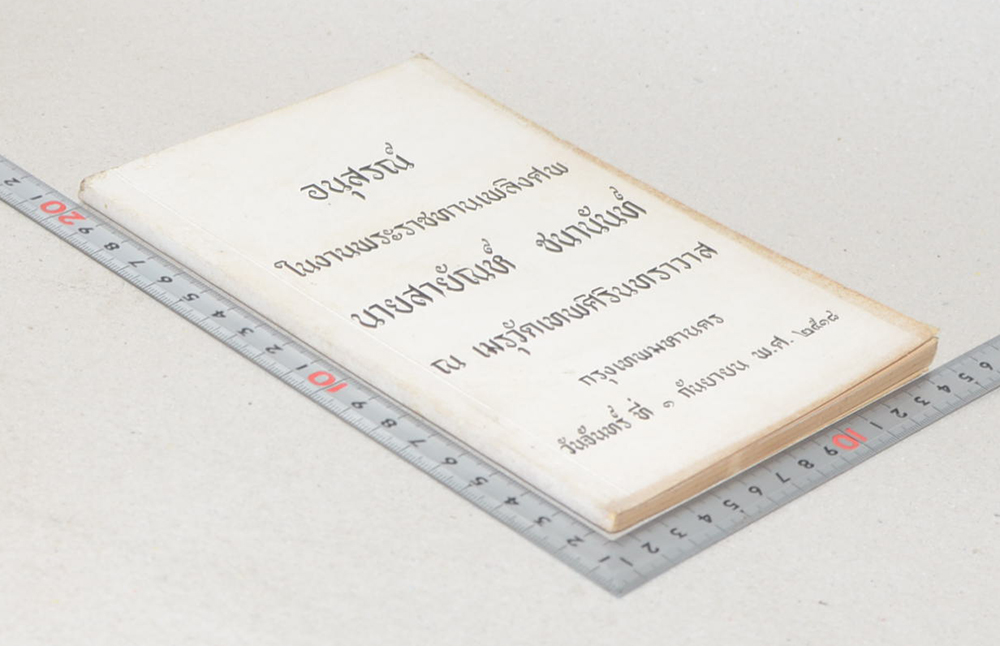 อนุสรณ์
ในงานพระราชทานเพลิงศพ
นายสายัณห์ ชนานันท์
ณ เมรุวัดเทพศิรินทราวาส
กรุงเทพมหานคร
วันจันทร์ ที่ ๑ กันยายน พ.ศ. ๒๕๑๘
2 1 20 9 8 7 6 5 4 3 2 1 10 9 8 7 6 5 4 3 2 1
2 3 4 5 6 7 8 9 10 1 2 3 4 5 6